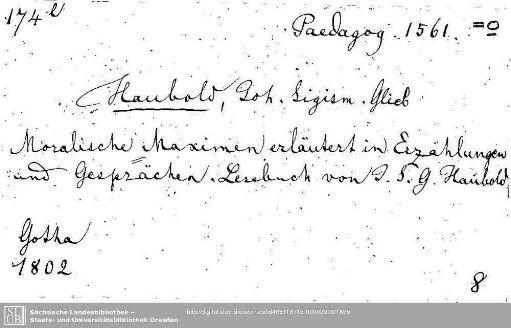 174 e
Paedagog. 1561. =o
Haubold, Joh. Sigism. Glieb
Moralische Maximen erläutert in Erzählungen
und Gesprächen. Lesebuch von J. S. G. Haubold,
Gotha
1802
8
Sächsische Landesbibliothek –
Staats- und Universitätsbibliothek Dresden